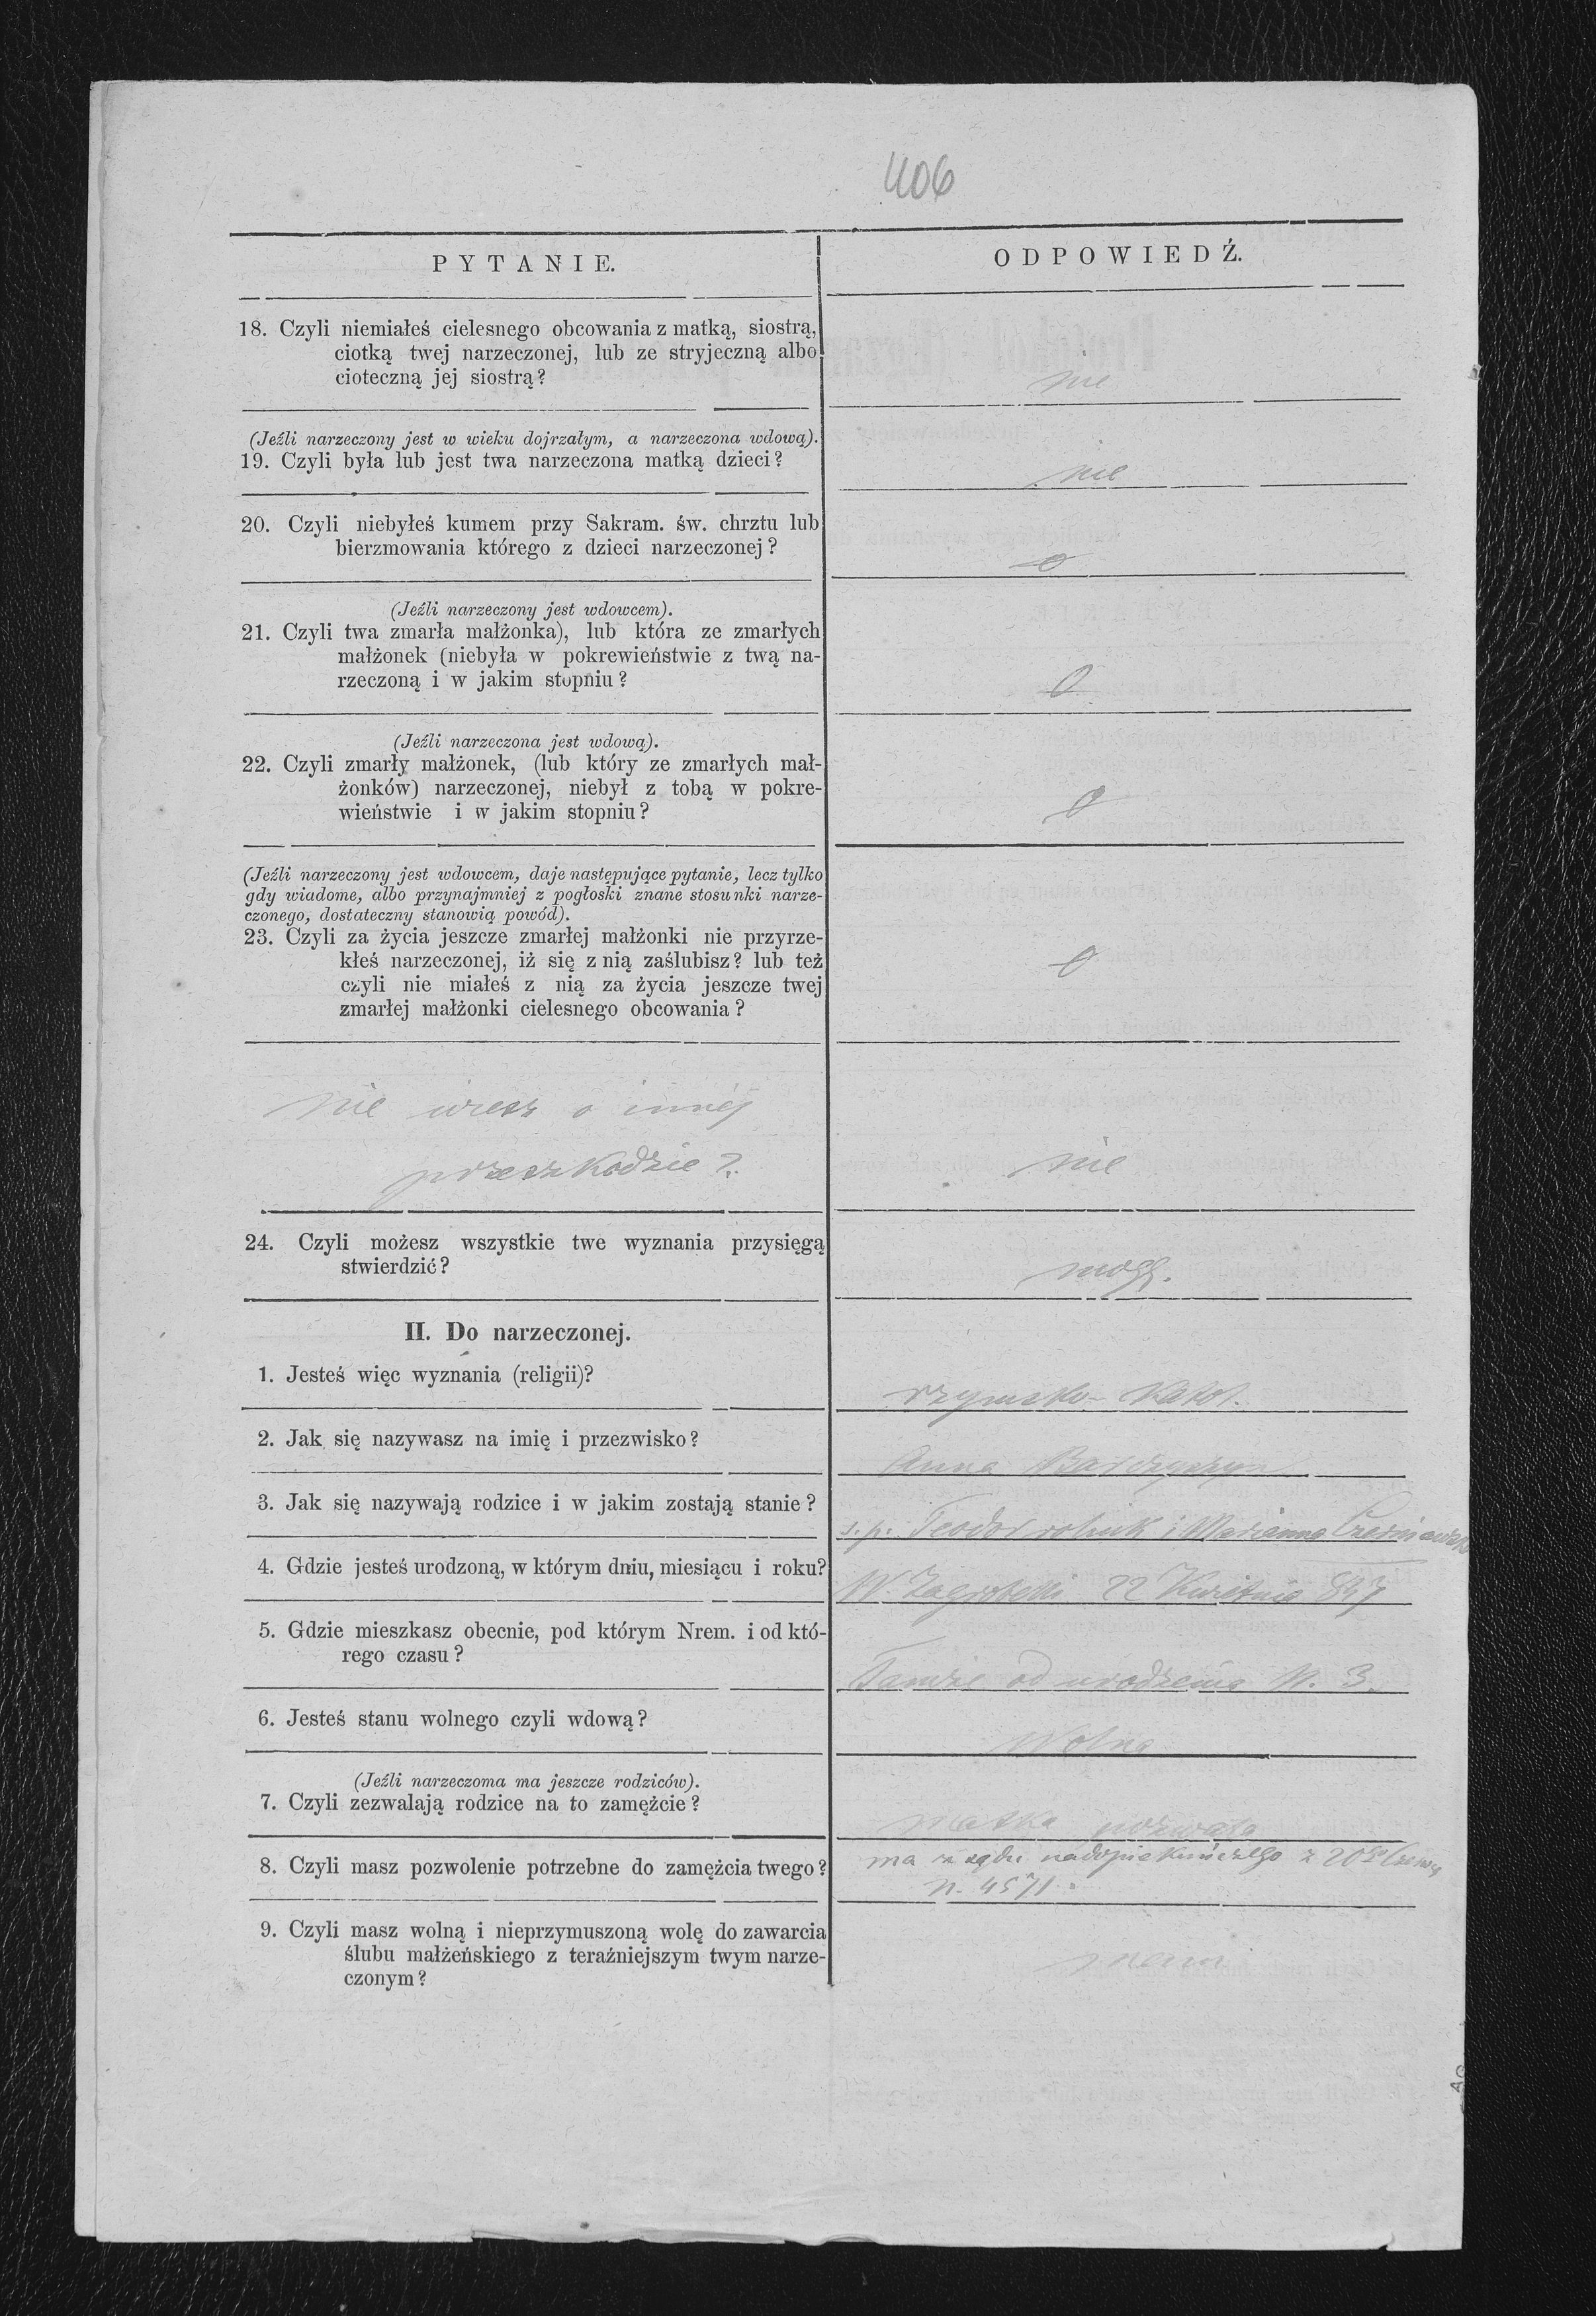 406
PYTANIE.
ODPOWIEDŹ.
18. Czyli niemiałeś cielesnego obcowania z matką, siostrą,
ciotką twej narzeczonej, lub ze stryjeczną albo
cioteczną jej siostrą?
nie
(Jeźli narzeczony jest w wieku dojrzałym, a narzeczona wdową).
19. Czyli była lub jest twa narzeczona matką dzieci?
nie
20. Czyli niebyłeś kumem przy Sakram. św. chrztu lub
bierzmowania którego z dzieci narzeczonej?
0
(Jeźli narzeczony jest wdowcem).
21. Czyli twa zmarła małżonka), lub która ze zmarłych
małżonek (niebyła w pokrewieństwie z twą na-
rzeczoną i w jakim stopniu?
0
(Jeźli narzeczona jest wdową).
22. Czyli zmarły małżonek, (lub który ze zmarłych mał-
żonków) narzeczonej, niebył z tobą w pokre-
wieństwie i w jakim stopniu?
0
(Jeźli narzeczony jest wdowcem, daje następujące pytanie, lecz tylko
gdy wiadome, albo przynajmniej z pogłoski znane stosunki narze-
czonego, dostateczny stanowią powód).
23. Czyli za życia jeszcze zmarłej małżonki nie przyrze-
kłeś narzeczonej, iż się z nią zaślubisz? lub też
czyli nie miałeś z nią za życia jeszcze twej
zmarłej małżonki cielesnego obcowania?
0
nie wiesz o innéj
przeszkodzie?
nie
24. Czyli możesz wszystkie twe wyznania przysięgą
stwierdzić?
mogę.
II. Do narzeczonej.
1. Jesteś więc wyznania (religii)?
rzymsko-katol.
2. Jak się nazywasz na imię i przezwisko?
Anna
3. Jak się nazywają rodzice i w jakim zostają stanie?
s. p. Teodor rolnik i Marianna
4. Gdzie jesteś urodzoną, w którym dniu, miesiącu i roku?
W. Zagrobeli 22 Kwietnia 847
5. Gdzie mieszkasz obecnie, pod którym Nrem. i od któ-
rego czasu?
Tamże od urodzenia N. 3.
6. Jesteś stanu wolnego czyli wdową?
Wolna
(Jeźli narzeczoma ma jeszcze rodziców).
7. Czyli zezwalają rodzice na to zamężcie?
matka pozwala
8. Czyli masz pozwolenie potrzebne do zamężcia twego?
ma z sądu nadopiekuńczego z 20go
N. 4571.
9. Czyli masz wolną i nieprzymuszoną wolę do zawarcia
ślubu małżeńskiego z teraźniejszym twym narze-
czonym?
mam